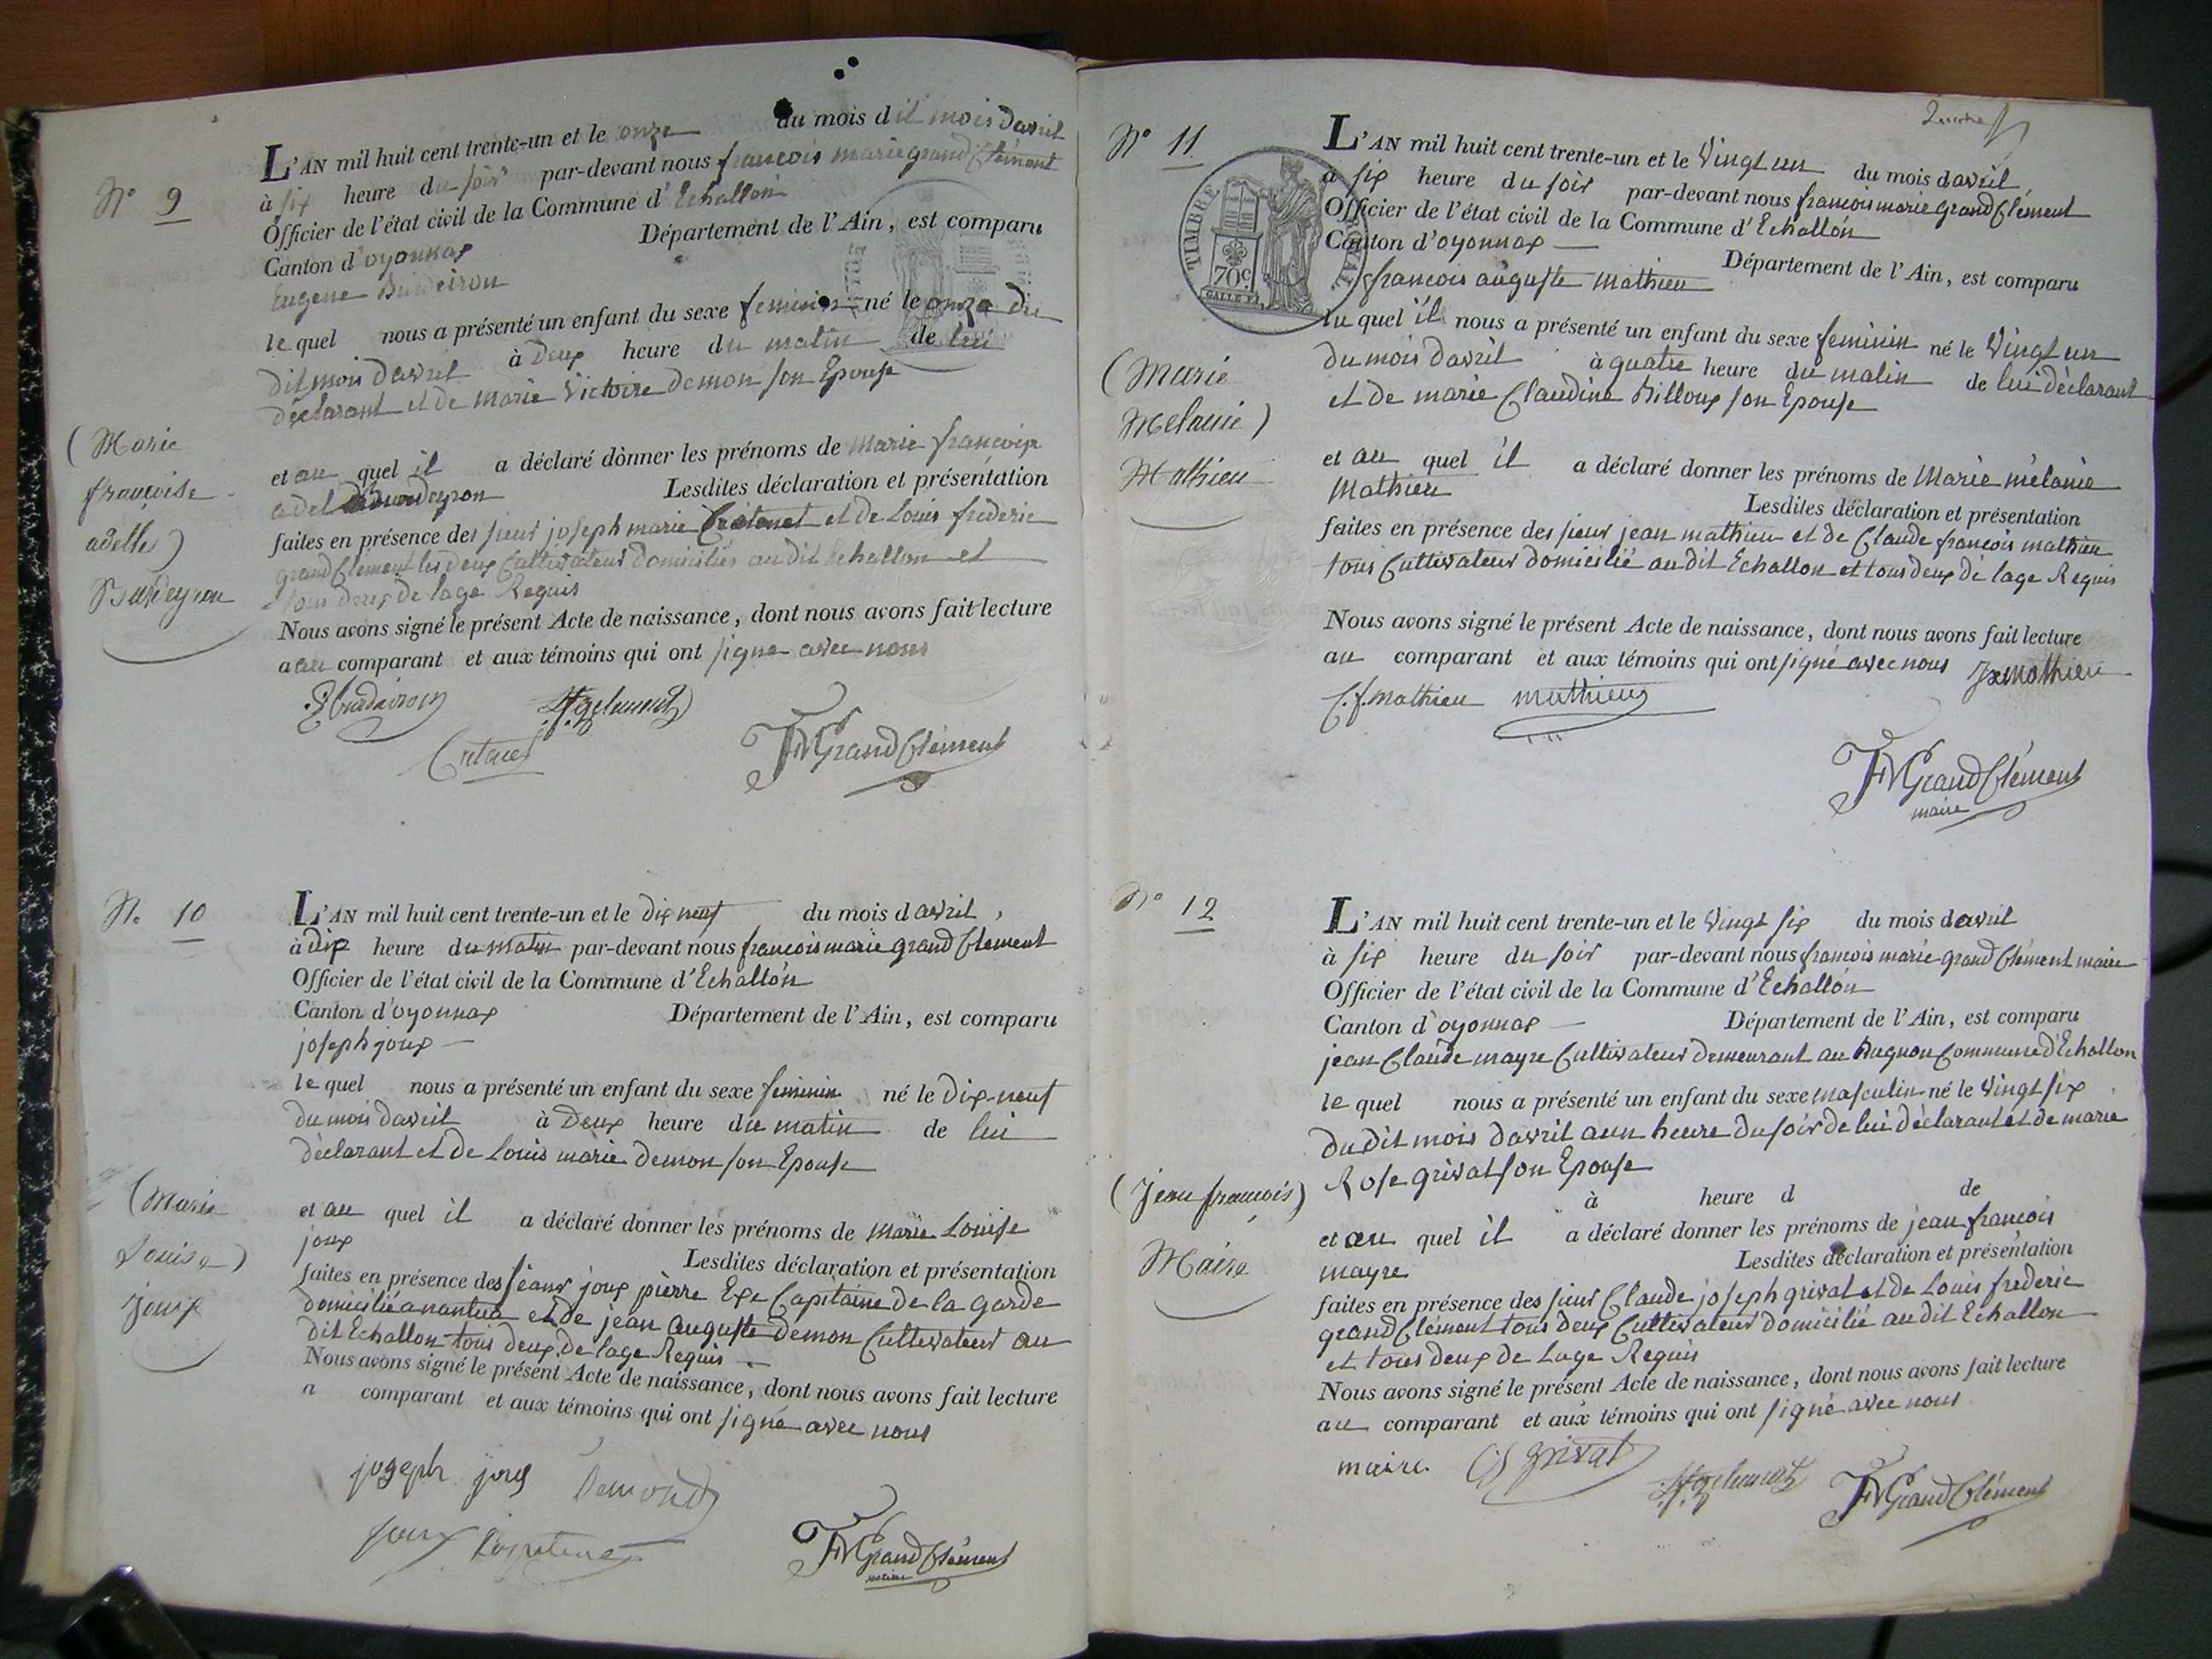 N° 9
L'AN mil huit cent trente-un et le onze du mois dil mois davril
à six heure du soir par-devant nous francois marie grand Clément
Officier de l'état civil de la Commune d'Echallon
Canton d'oyonnax Département de l'Ain, est comparu
Eugene Burdeiron
le quel nous a présenté un enfant du sexe feminin né le onze du
dit mois davril à deux heure du matin de lui
déclarant et de marie Victoire demon son Epouse
(Marie
françoise
adelle)
Burdeyron
et au quel il a déclaré dònner les prénoms de marie francoise
adel Burdeyron Lesdites déclaration et présentation
faites en présence des sieur joseph marie et de Louis frederic
grand Clément les deux Cultivateur domiciliés au dit Echallon et
tous deux de lage Requis
Nous avons signé le présent Acte de naissance, dont nous avons fait lecture
a au comparant et aux témoins qui ont signé avec nous
FMGrand Clément
N° 10
L'AN mil huit cent trente-un et le dix neuf du mois d avril,
à dix heure du matin par-devant nous francois marie grand Clement
Officier de l'état civil de la Commune d'Echallon
Canton d'oyonnax Département de l'Ain, est comparu
joseph joux
le quel nous a présenté un enfant du sexe feminin né le dix-neuf
du mois davril à Deux heure du matin de lui
déclarant et de Louis marie demon son Epouse
(Marie
Louise)
joux
et au quel il a déclaré donner les prénoms de marie Louise
joux Lesdites déclaration et présentation
faites en présence des sieurs joux pierre Exe Capitaine de la garde
domicilié a nantua et de jean auguste demon Cultivateur au
dit Echallon tous deux de lage Requis
Nous avons signé le présent Acte de naissance, dont nous avons fait lecture
a comparant et aux témoins qui ont signé avec nous
joseph joux Demond
joux Capitaine FMGrand Clément
maire
N° 11
TIMBRE ROYAL
70c.
L'AN mil huit cent trente-un et le Vingt un du mois davril
à six heure du soir par-devant nous francois marie grand Clément
Officier de l'état civil de la Commune d'Echallon
Canton d'oyonnax Département de l'Ain, est comparu
francois auguste mathieu
lu quel il nous a présenté un enfant du sexe feminin né le Vingt un
du mois davril à quatre heure du matin de lui déclarant
et de marie Claudine Billoux son Epouse
(Marie
Melanie)
Mathieu
et au quel il a déclaré donner les prénoms de Marie mélanie
Mathieu Lesdites déclaration et présentation
faites en présence des sieur jean mathieu et de Claude francois mathieu
tous Cultivateur domicilié au dit Echallon et tous deux de lage Requis
Nous avons signé le présent Acte de naissance, dont nous avons fait lecture
au comparant et aux témoins qui ont signé avec nous mathieu
C.f. mathieu mathieu
FMGrand Clément
maire
N° 12
L'AN mil huit cent trente-un et le Vingt six du mois davril
à six heure du soir par-devant nous francois marie grand Clément maire
Officier de l'état civil de la Commune d'Echallon
Canton d'oyonnax Département de l'Ain, est comparu
jean Claude mayre Cultivateur demeurant au Bugnon Commune d'Echallon
le quel nous a présenté un enfant du sexe masculin né le Vingt six
du dit mois davril a un heure du soir de lui déclarant et de marie
Rose grivat son Epouse
à heure d de
(Jean françois)
Maire
et au quel il a déclaré donner les prénoms de jean francois
mayre Lesdites déclaration et présentation
faites en présence des sieur Claude joseph grivat et de Louis frederic
grand Clément tous deux Cultivateur domicilié au dit Echallon
et tous deux de Lage Requis
Nous avons signé le présent Acte de naissance, dont nous avons fait lecture
au comparant et aux témoins qui ont signé avec nous
maire grivat FMGrand Clément